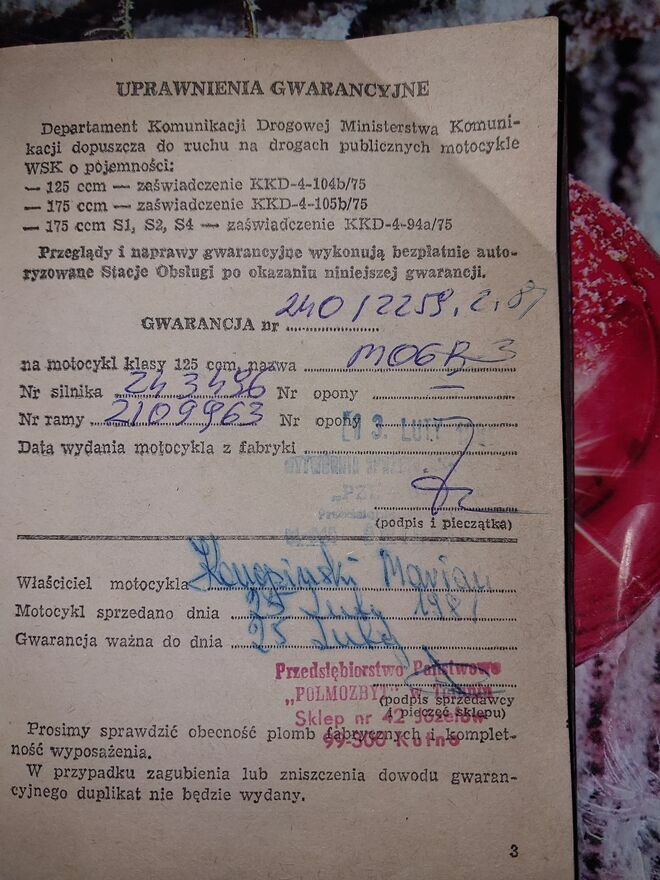 UPRAWNIENIA GWARANCYJNE
Departament Komunikacji Drogowej Ministerstwa Komuni-
kacji dopuszcza do ruchu na drogach publicznych motocykle
WSK o pojemności:
— 125 ccm — zaświadczenie KKD-4-104b/75
— 175 ccm — zaświadczenie KKD-4-105b/75
— 175 ccm S1, S2, S4 — zaświadczenie KKD-4-94a/75
Przeglądy i naprawy gwarancyjne wykonują bezpłatnie auto-
ryzowane Stacje Obsługi po okazaniu niniejszej gwarancji.
GWARANCJA nr
na motocykl klasy 125 ccm, nazwa M06B3
Nr silnika 243496 Nr opony —
Nr ramy 2109963 Nr opony
13. LUTY
Data wydania motocykla z fabryki
(podpis i pieczątka)
Właściciel motocykla Konopiński Marian
Motocykl sprzedano dnia 25 Luty 1981
Gwarancja ważna do dnia 25 Luty
Przedsiębiorstwo Państwowe
„POLMOZBYT" w
(podpis sprzedawcy
i pieczęć sklepu)
Sklep nr 42 Józefów
99-300 Kutno
Prosimy sprawdzić obecność plomb fabrycznych i komplet-
ność wyposażenia.
W przypadku zagubienia lub zniszczenia dowodu gwaran-
cyjnego duplikat nie będzie wydany.
3